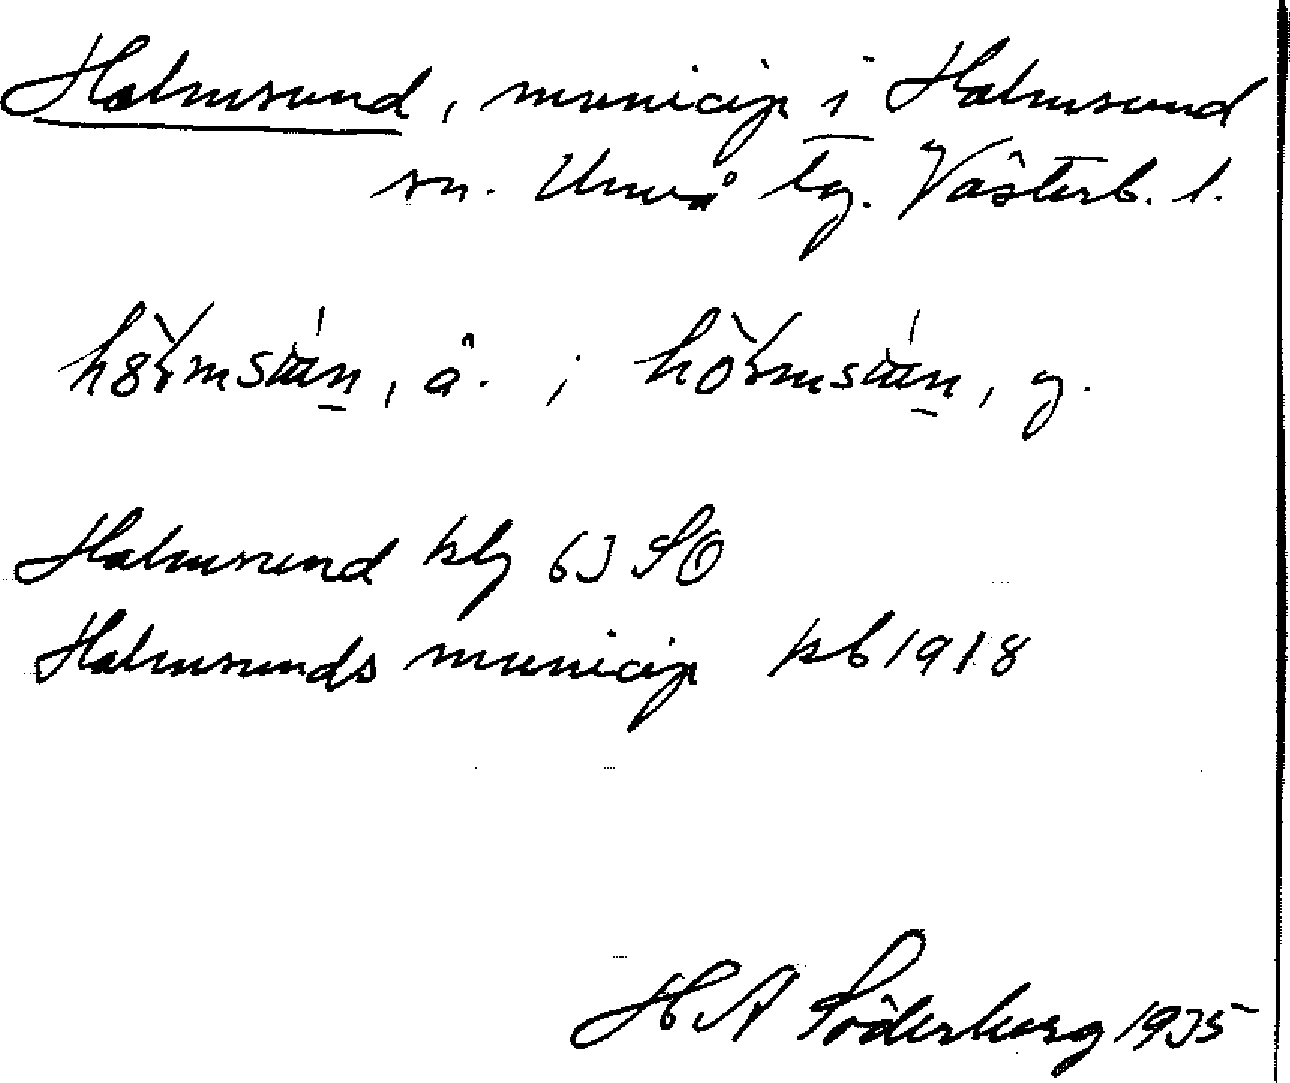 Holmsund, municip i Holmsund
sn. Umeå tg. Västerb. l.
Holmsund kbg 63 SO
Holmsunds municip kb 1918
H A Söderberg 1935